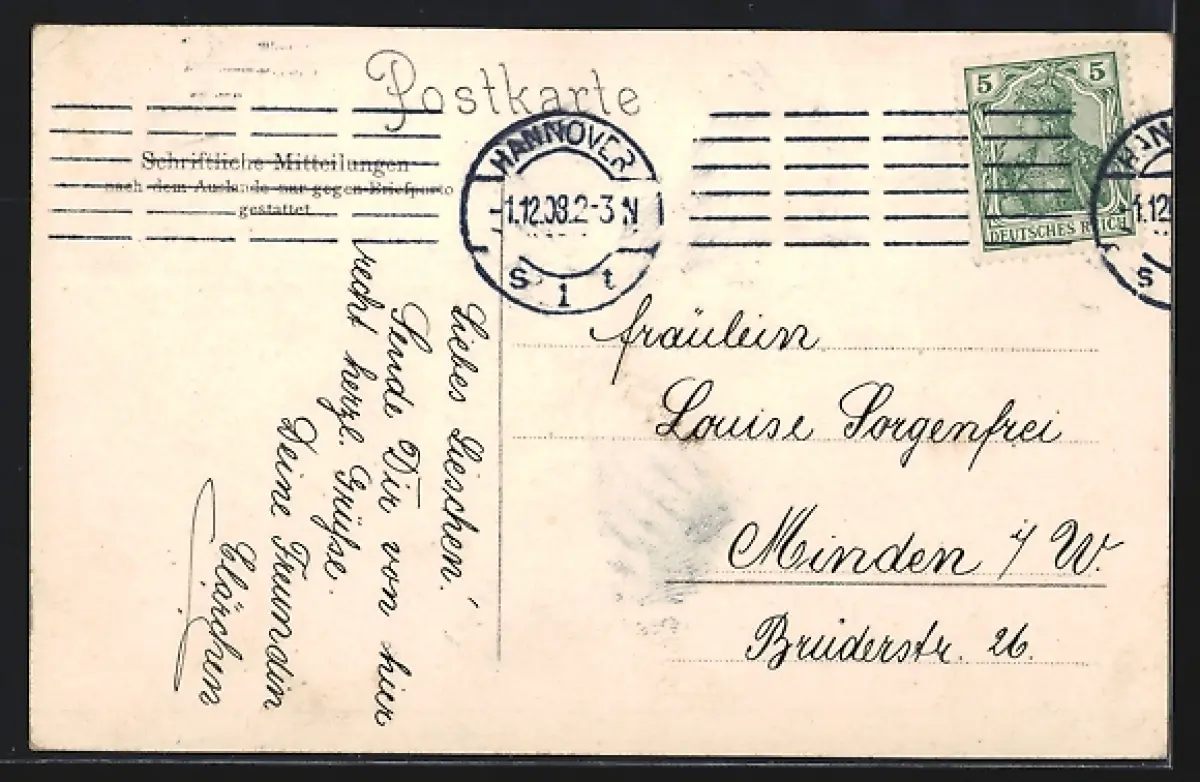 Postkarte
Schriftliche Mitteilungen
nach dem Auslande nur gegen Briefporto
gestattet
HANNOVER
1.12.08.2-3 N
S 1 t
5 5
DEUTSCHES REICH
HANN
1.12
S
Liebes Lieschen!
Sende Dir von hier
recht herzl. Grüße.
Deine Freundin
Clärchen
Fräulein
Louise Sorgenfrei
Minden i/W.
Brüderstr. 26.